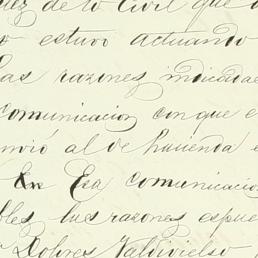 de lo Civil que
estuvo actuando
las razones indicadas
comunicacion con que e
envió al de hacienda e
En Esa comunicacio
bles las razones espue
Dolores Valdivielso